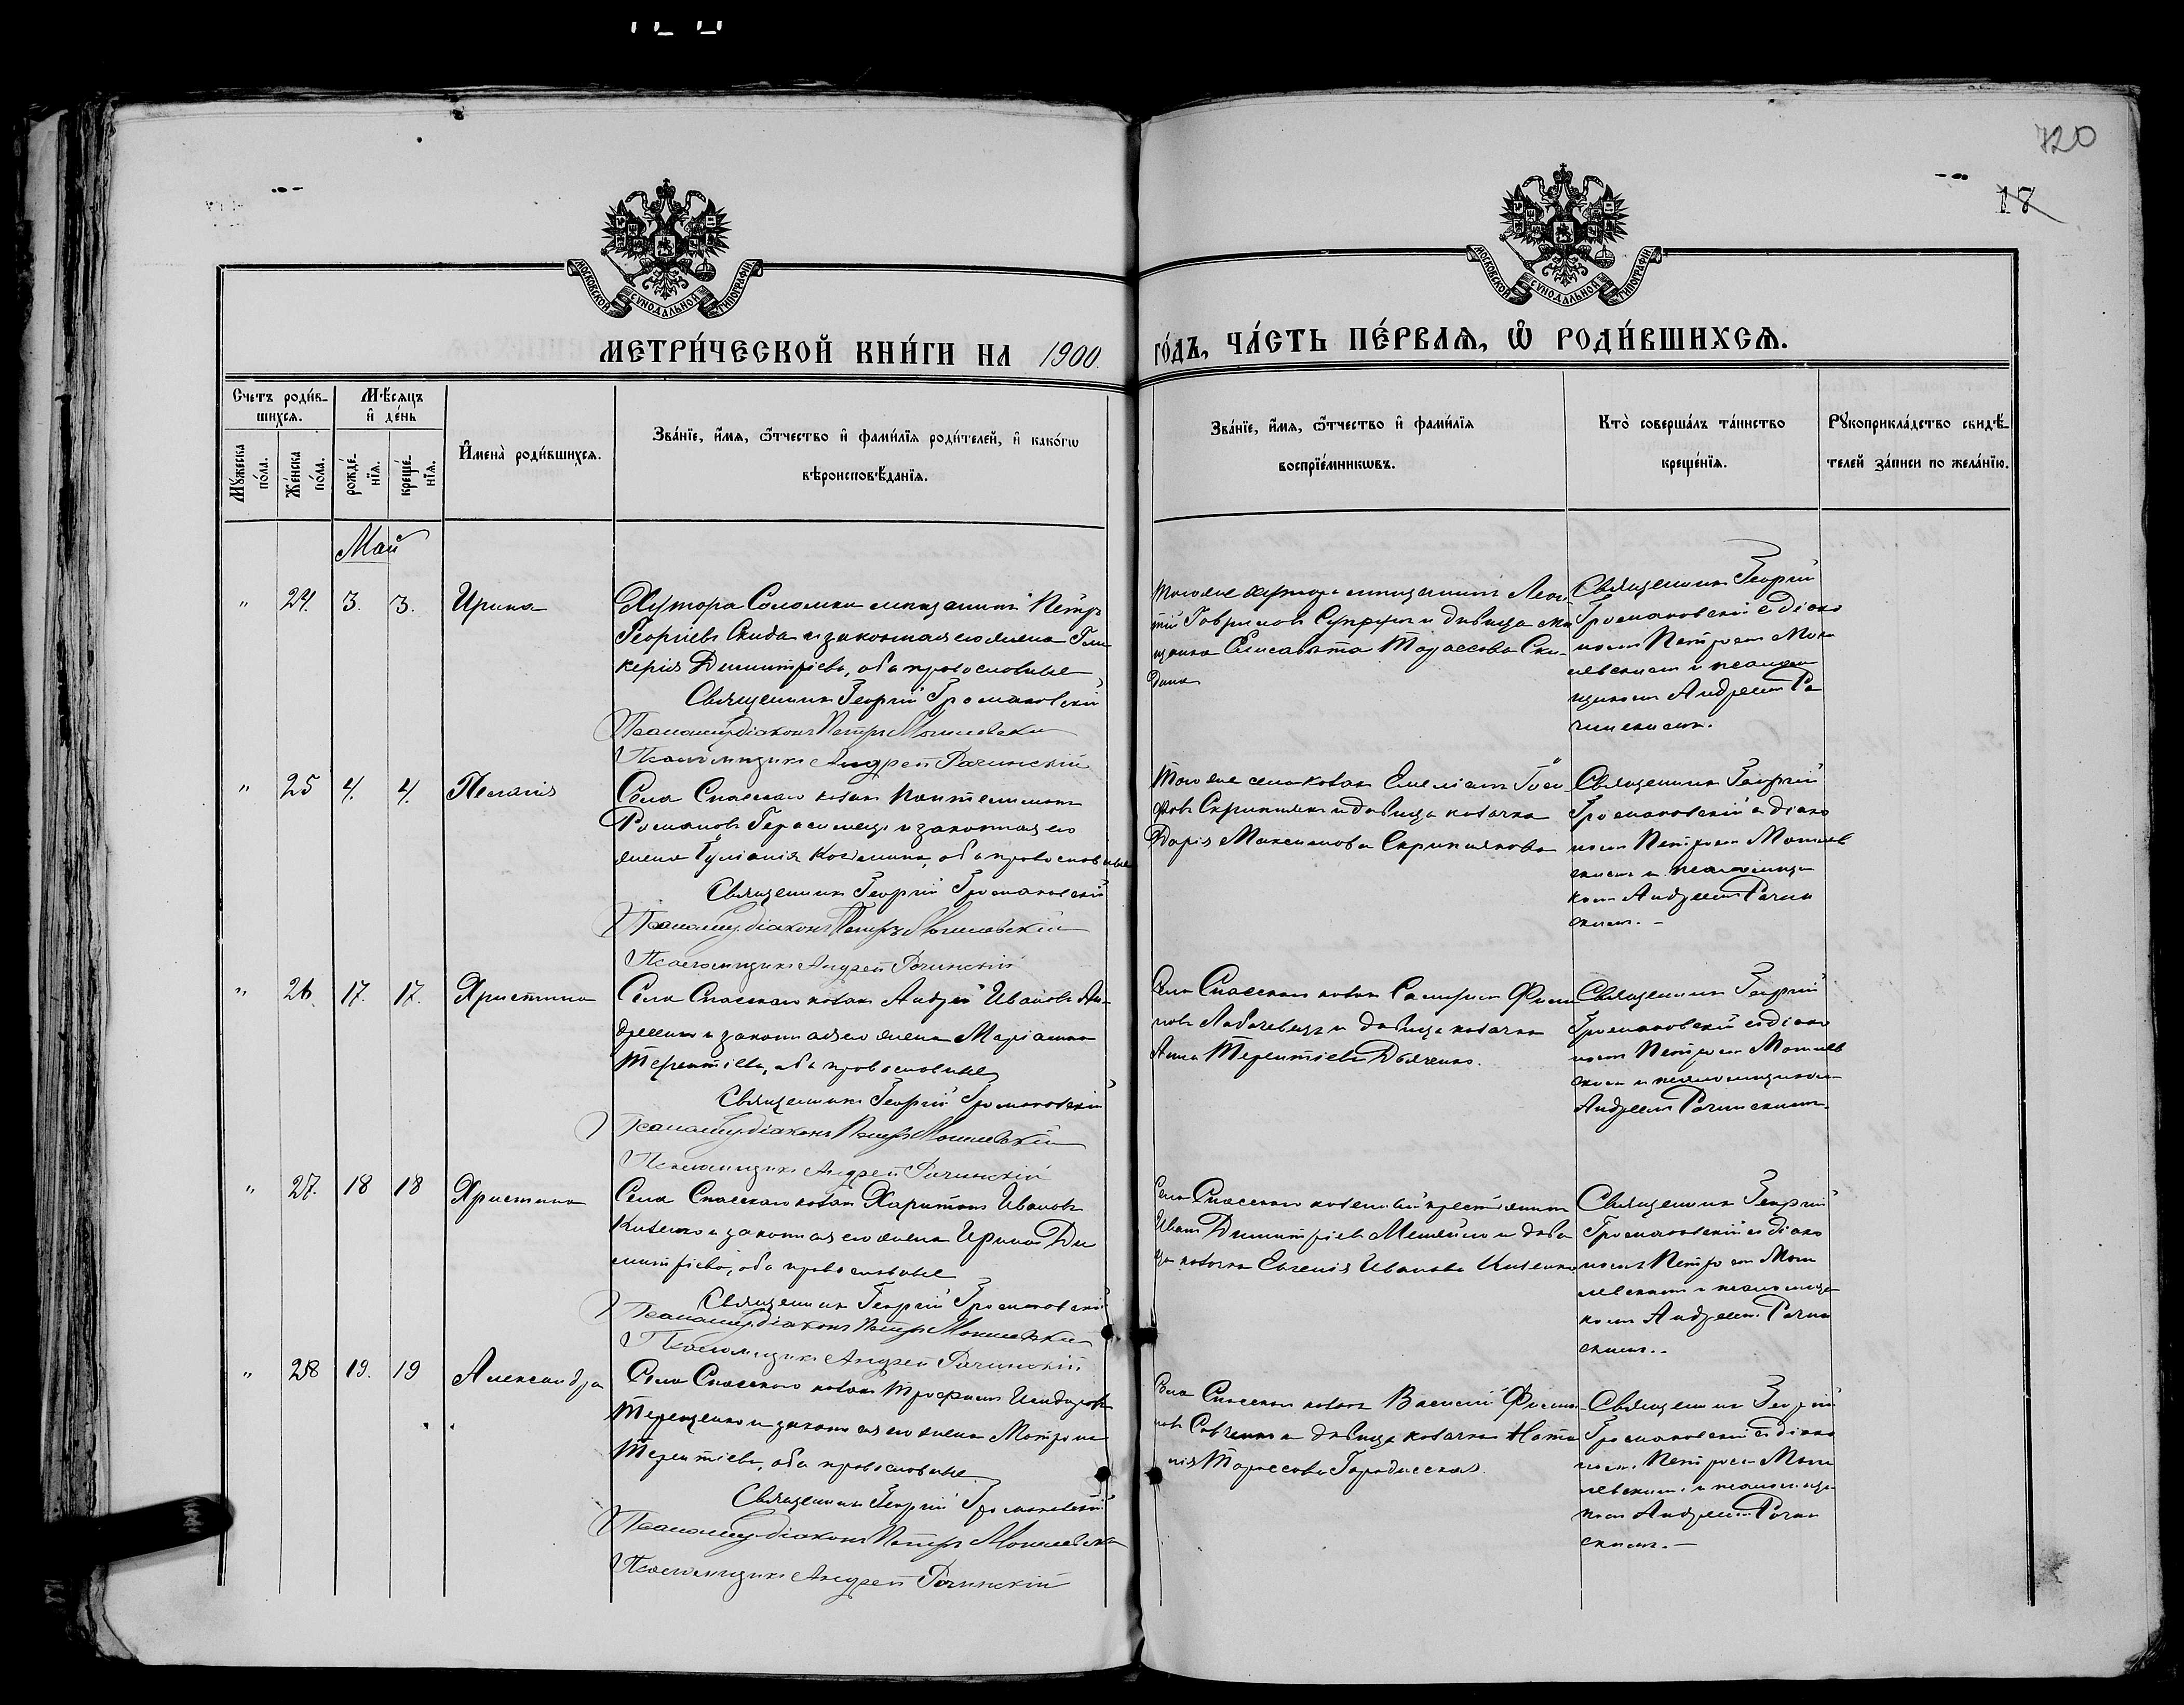 720
18
МОСКОВСКОЙ СѴНОДАЛЬНОЙ ТИПОГРАФІИ.
МОСКОВСКОЙ СѴНОДАЛЬНОЙ ТИПОГРАФІИ.
МЕТРИ́ЧЕСКОЙ КНИ́ГИ НА 1900.
ГО́ДЪ, ЧА́СТЬ ПЕ́РВАѦ, Ѽ РОДИ́ВШИХСѦ.
Счетъ роди́в-
шихсѧ.
Мѣ́сѧцъ
и҆ де́нь
Мꙋ́жеска
по́ла.
Же́нска
по́ла.
рожде́-
нїѧ.
креще́-
нїѧ.
И҆мена̀ роди́вшихсѧ.
Зва́нїе, и҆́мѧ, ѻ҆́тчество и҆ фами́лїѧ роди́телей, и҆ како́гѡ
вѣроисповѣ́данїѧ.
Зва́нїе, и҆́мѧ, ѻ҆́тчество и҆ фами́лїѧ
воспрїе́мникѡвъ.
Кто̀ соверша́лъ та́инство
креще́нїѧ.
Рꙋкоприкла́дство свидѣ́-
телей за́писи по жела́нїю.
Май
" 24. 3. 3. Ирина
Хутора Соломки мѣщанинъ Петръ
Георгіевъ Скиба и законная его жена Гли
керія Димитріева, оба православные
Священникъ Георгій Громаковскій
Псаломщ. діаконъ Петръ Могилевскій
Псаломщикъ Андрей Рачинскій
Тогоже хутора мѣщанинъ Леон-
тій Гавриловъ и дѣвица мѣ
щанка Елисавета Тарасова Ски-
бина
Священникъ Георгій
Громаковскій съ діако
номъ Петромъ Моги
левскимъ и псалом
щикомъ Андреемъ Ра
чинскимъ.
" 25 4. 4. Пелагія
Села Спасскаго козакъ Пантелимонъ
Романовъ Герасимецъ и законная его
жена Іуліанія Козьмина, оба православные
Священникъ Георгій Громаковскій
Псаломщ. діаконъ Петръ Могилевскій
Псаломщикъ Андрей Рачинскій
Того же села козакъ Емеліанъ Іоси
фовъ Скрипникъ и дѣвица козачка
Дарія Максимова Скрипникова
Священникъ Георгій
Громаковскій съ діако
номъ Петромъ Могилев
скимъ и псаломщи
комъ Андреемъ Рачин
скимъ. –
" 26. 17. 17. Христина
Села Спасскаго козакъ Андрей Ивановъ Ан-
дреенко и законная его жена Маріанна
Терентіева, оба православные
Священникъ Георгій Громаковскій
Псаломщ. діаконъ Петръ Могилевскій
Псаломщикъ Андрей Рачинскій
Села Спасскаго козакъ
и дѣвица козачка
Анна Терентіева Дьяченко.
Священникъ Георгій
Громаковскій съ діако
номъ Петромъ Могилев
скимъ и псаломщикомъ
Андреемъ Рачинскимъ.
" 27. 18 18 Христина
Села Спасскаго козакъ Харитонъ Ивановъ
Кизенко и законная его жена Ирина Ди
митріева, оба православные
Священникъ Георгій Громаковскій
Псаломщ. діаконъ Петръ Могилевскій
Псаломщикъ Андрей Рачинскій
Села Спасскаго казенный крестьянинъ
Иванъ Димитріевъ и дѣви
ца козачка Евгенія Иванова Кизенко
Священникъ Георгій
Громаковскій съ діако
номъ Петромъ Моги
левскимъ и псаломщи
комъ Андреемъ Рачин
скимъ..
" 28 19. 19 Александра
Села Спасскаго козакъ Трофимъ Исидоровъ
Терещенко и законная его жена Матрона
Терентіева, оба православные.
Священникъ Георгій Громаковскій
Псаломщ. діаконъ Петръ Могилевскій
Псаломщикъ Андрей Рачинскій
Села Спасскаго козакъ Василій Филип-
повъ Савченко и дѣвица козачка Ната
лія Тарасова Городисская.
Священникъ Георгій
Громаковскій съ діако
номъ Петромъ Моги
левскимъ и псаломщи
комъ Андреемъ Рачин
скимъ. –